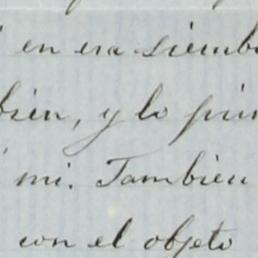 en era siemb
bien, y lo pin
mi. Tambien
con el objeto